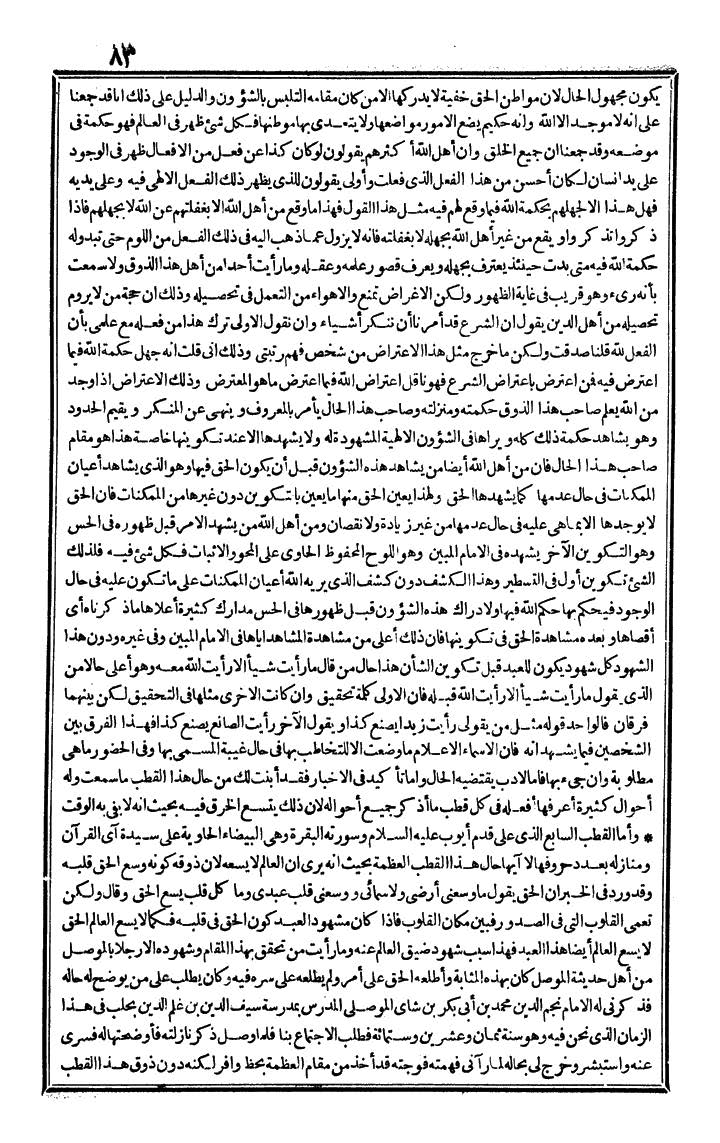 ٨٣
يكون مجهول الحال لان مواطن الحق خفية لا يدركها الا من كان مقامه التلبس بالشؤون والدليل على ذلك اناقد جمعنا
على انه لا موجد الا الله وانه حكيم يضع الامور مواضعها ولا يتعدى بها موطنها فكل شئ ظهر فى العالم فهو حكمة فى
موضعه وقد جمعنا ان جميع الخلق وان أهل الله أ كثرهم يقولون لو كان كذا عن فعل من الافعال ظهر فى الوجود
على يد انسان لكان أحسن من هذا الفعل الذى فعلت وأولى يقولون للذى يظهر ذلك الفعل الالهى فيه وعلى يديه
فهل هذا الا لجهلهم بحكمة الله فيما وقع لهم فيه مثل هذا القول فهذا ما وقع من أهل الله الا بغفلتهم عن الله لا بجهلهم فاذا
ذكروا تذكروا ويقع من غير أهل الله بجهله لا بغفلته فانه لا يزول عما ذهب اليه فى ذلك الفعل من اللوم حتى تبدوله
حكمة الله فيه متى بدت حينئذ يعترف بجهله ويعرف قصور علمه وعقله وما رأيت أحدا من أهل هذا الذوق ولا سمعت
بأنه رىء وهو قريب فى غاية الظهور ولكن الاغراض تمنع والاهواء من التعمل فى تحصيله وذلك ان حجة من لا يروم
تحصيله من أهل الدين يقول ان الشرع قد أمرنا أن ننكر أشياء وان نقول الاولى ترك هذا من فعله مع علمى بأن
الفعل لله قلنا صدقت ولكن ما خرج مثل هذا الاعتراض من شخص فهم رتبتى وذلك انى قلت انه جهل حكمة الله فيما
اعترض فيه فمن اعترض باعتراض الشرع فهو ناقل اعتراض الله فيما اعترض ما هو المعترض وذلك الاعتراض اذا وجد
من الله يعلم صاحب هذا الذوق حكمته ومنزلته وصاحب هذا الحال يأمر بالمعروف وينهى عن المنكر ويقيم الحدود
وهو يشاهد حكمة ذلك كله ويراها فى الشؤون الالهية المشهودة له ولا يشهدها الا عند تكوينها خاصة هذا هو مقام
صاحب هذا الحال فان من أهل الله أيضا من يشاهد هذه الشؤون قبل أن يكون الحق فيها وهو الذى يشاهد أعيان
الممكنات فى حال عدمها كما يشهدها الحق ولهذا يعين الحق منها ما يعين بالتكوين دون غيرها من الممكنات فان الحق
لا يوجدها الا بما هى عليه فى حال عدمها من غير زيادة ولا نقصان ومن أهل الله من يشهد الامر قبل ظهوره فى الحس
وهو التكوين الآخر يشهده فى الامام المبين وهو اللوح المحفوظ الحاوى على المحو والاثبات فكل شئ فيه فلذلك
الشئ تكوين أول فى التسطير وهذا الكشف دون كشف الذى يريه الله أعيان الممكنات على ما تكون عليه فى حال
الوجود فيحكم بها حكم الله فيها ولادراك هذه الشؤون قبل ظهورها فى الحس مدارك كثيرة أعلاها ما ذكرناه أى
أقصاها وبعده مشاهدة الحق فى تكوينها فان ذلك أعلى من مشاهدة المشاهد اياها فى الامام المبين وفى غيره ودون هذا
الشهود كل شهود يكون للعبد قبل تكوين الشأن هذا حال من قال ما رأيت شيأ الا رأيت الله معه وهو أعلى حالا من
الذى يقول ما رأيت شيأ الا رأيت الله قبله فان الاولى كلمة تحقيق وان كانت الاخرى مثلها فى التحقيق لكن بينهما
فرقان فالواحد قوله مثل من يقول رأيت زيدا يصنع كذا ويقول الآخر رأيت الصانع يصنع كذا فهذا الفرق بين
الشخصين فيما يشهدانه فان الاسماء الاعلام ما وضعت الا للتخاطب بها فى حال غيبة المسمى بها وفى الحضور ما هى
مطلوبة وان جىء بها فاما لادب يقتضيه الحال واما تأكيد فى الاخبار فقد أبنت لك من حال هذا القطب ما سمعت وله
أحوال كثيرة أعرفها أفعله فى كل قطب ما أذكر جميع أحواله لان ذلك يتسع الخرق فيه بحيث انه لا يفى به الوقت
* وأما القطب السابع الذى على قدم أيوب عليه السلام وسورته البقرة وهى البيضاء الحاوية على سيدة آى القرآن
ومنازله بعدد حروفها لا آيها حال هذا القطب العظمة بحيث انه يرى ان العالم لا يسعه لان ذوقه كونه وسع الحق قلبه
وقد ورد فى الخبر ان الحق يقول ما وسعنى أرضى ولا سمائى ووسعنى قلب عبدى وما كل قلب يسع الحق وقال ولكن
تعمى القلوب التى فى الصدور فبين مكان القلوب فاذا كان مشهود العبد كون الحق فى قلبه فكما لا يسع العالم الحق
لا يسع العالم أيضا هذا العبد فهذا سبب شهود ضيق العالم عنه وما رأيت من تحقق بهذا المقام وشهوده الا رجلا بالموصل
من أهل حديثة الموصل كان بهذه المثابة وأطلعه الحق على أمر ولم يطلعه على سره فيه وكان يطلب على من يوضح له حاله
فذكرنى له الامام نجم الدين محمد بن أبى بكر بن شاى الموصلى المدرس بمدرسة سيف الدين بن علم الدين بحلب فى هذا
الزمان الذى نحن فيه وهو سنة ثمان وعشرين وستمائة فطلب الاجتماع بنا فلما وصل ذكر نازلته فأوضحتها له فسرى
عنه واستبشر وخرج لى بحاله لما رآنى فهمته فوجته قد أخذ من مقام العظمة بحظ وافر لكنه دون ذوق هذا القطب